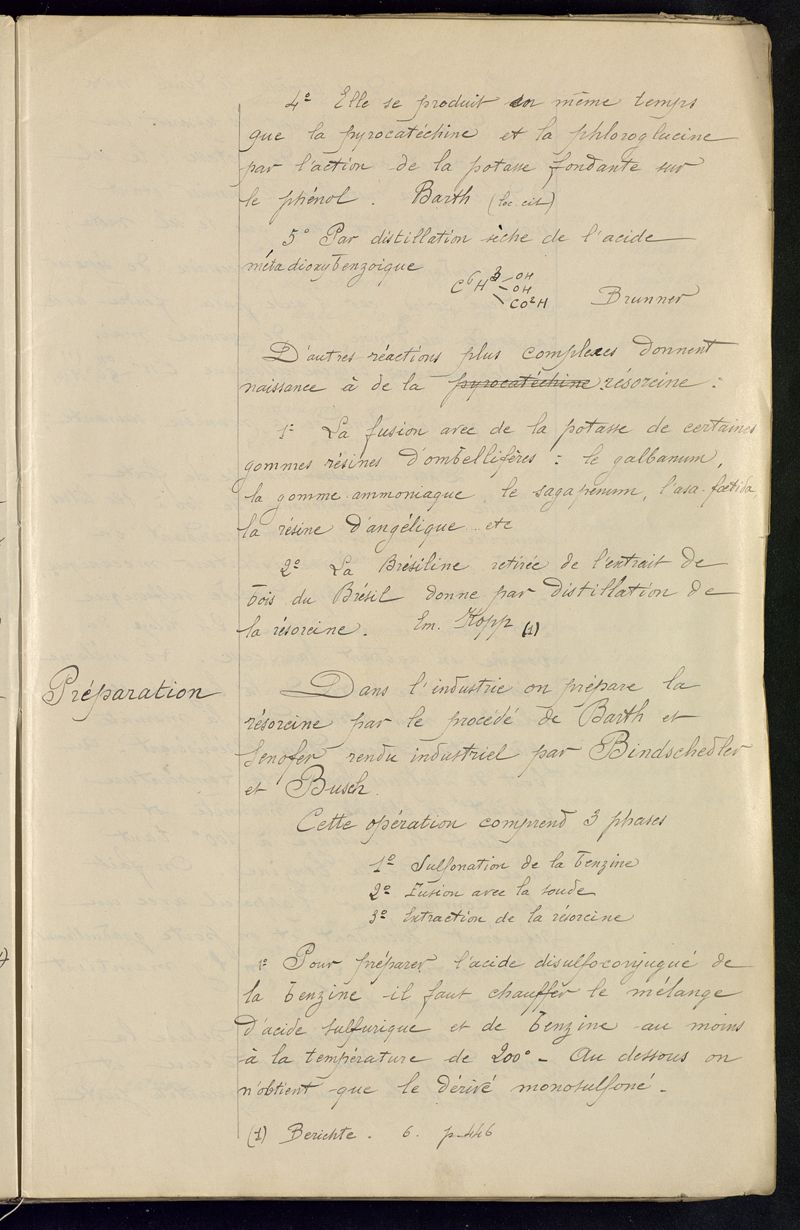 4° Elle se produit en même temps
que la pyrocatéchine et la phloroglucine
par l'action de la potasse fondante sur
le phénol. Barth (loc. cit)
5° Par distillation sèche de l'acide
métadioxybenzoique
C⁶H³ OH
OH
CO²H Brunner
D'autres réactions plus complexes donnent
naissance à de la pyrocatéchine résorcine :
1° La fusion avec de la potasse de certaines
gommes résines d'ombellifères : le galbanum,
la gomme ammoniaque, le sagapenum, l'asa-fœtida
la résine d'angélique etc
2° La Brésiline retirée de l'extrait de
bois du Brésil donne par distillation de
la résorcine. Em. Kopp (1)
Préparation
Dans l'industrie on prépare la
résorcine par le procédé de Barth et
Senofer rendu industriel par Bindschedler
et Busch.
Cette opération comprend 3 phases
1° Sulfonation de la benzine
2° Fusion avec la soude
3° Extraction de la résorcine
1° Pour préparer l'acide disulfoconjugué de
la benzine il faut chauffer le mélange
d'acide sulfurique et de benzine au moins
à la température de 200° - Au dessous on
n'obtient que le dérivé monosulfoné -
(1) Berichte. 6. p. 446